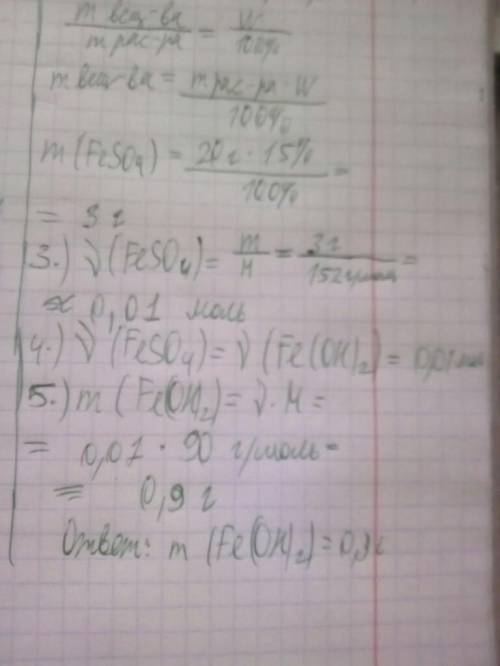 m вещ-ва / m рас-ра = W / 100%
m вещ-ва = m рас-ра · W / 100%
m (FeSO4) = 20 г · 15% / 100% =
= 3 г
3.) ν (FeSO4) = m / M = 3 г / 152 г/моль =
≈ 0,01 моль
4.) ν (FeSO4) = ν (Fe(OH)2) = 0,01 моль
5.) m (Fe(OH)2) = ν · M =
= 0,01 · 90 г/моль =
= 0,9 г
Ответ: m (Fe(OH)2) = 0,9 г